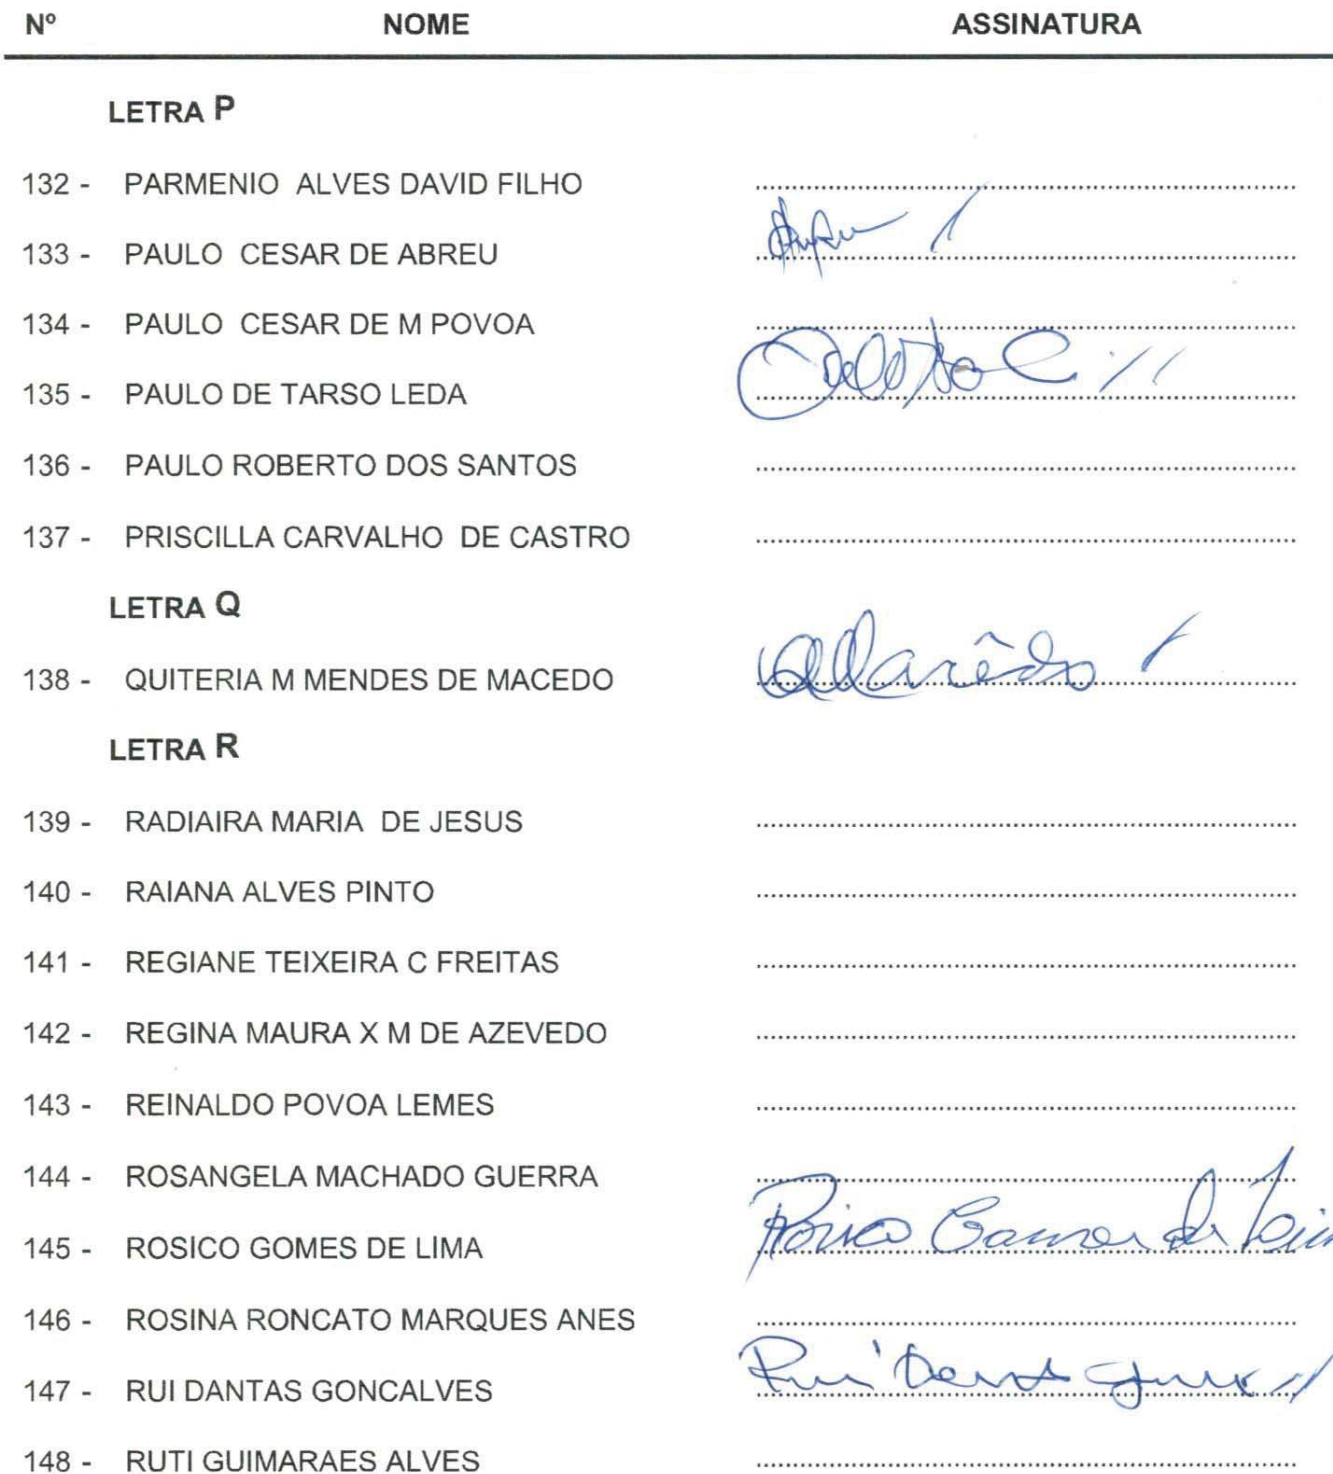 Nº NOME ASSINATURA
LETRA P
132 - PARMENIO ALVES DAVID FILHO
133 - PAULO CESAR DE ABREU
134 - PAULO CESAR DE M POVOA
135 - PAULO DE TARSO LEDA
136 - PAULO ROBERTO DOS SANTOS
137 - PRISCILLA CARVALHO DE CASTRO
LETRA Q
138 - QUITERIA M MENDES DE MACEDO
LETRA R
139 - RADIAIRA MARIA DE JESUS
140 - RAIANA ALVES PINTO
141 - REGIANE TEIXEIRA C FREITAS
142 - REGINA MAURA X M DE AZEVEDO
143 - REINALDO POVOA LEMES
144 - ROSANGELA MACHADO GUERRA
145 - ROSICO GOMES DE LIMA Rosico Gomes de Lima
146 - ROSINA RONCATO MARQUES ANES
147 - RUI DANTAS GONCALVES Rui Dantas
148 - RUTI GUIMARAES ALVES